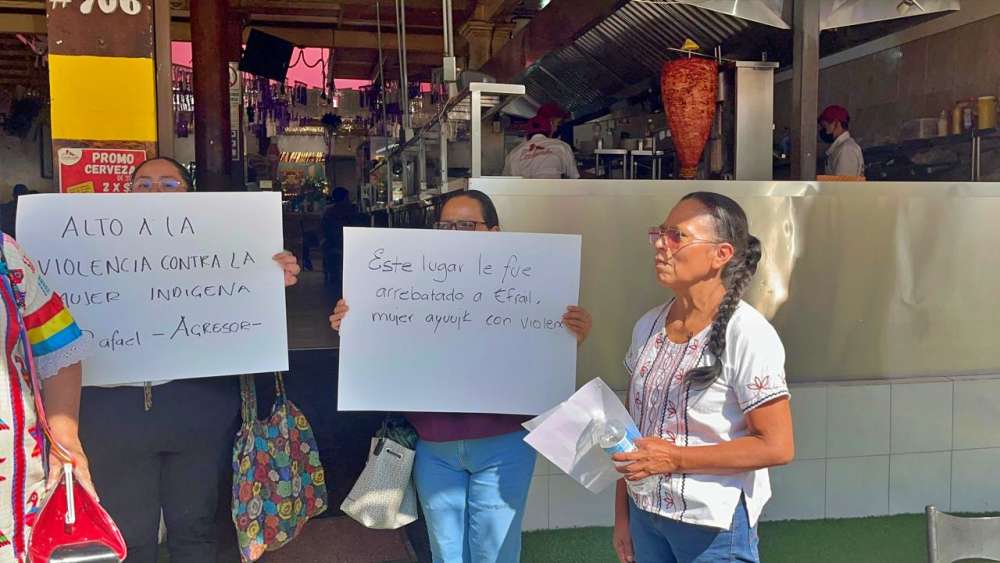 # 706
PROMO
CERVEZA
2 X
ALTO A LA
VIOLENCIA CONTRA LA
MUJER INDIGENA
Rafael - AGRESOR -
Este lugar le fue
arrebatado a Efrail,
mujer ayuujk con violen